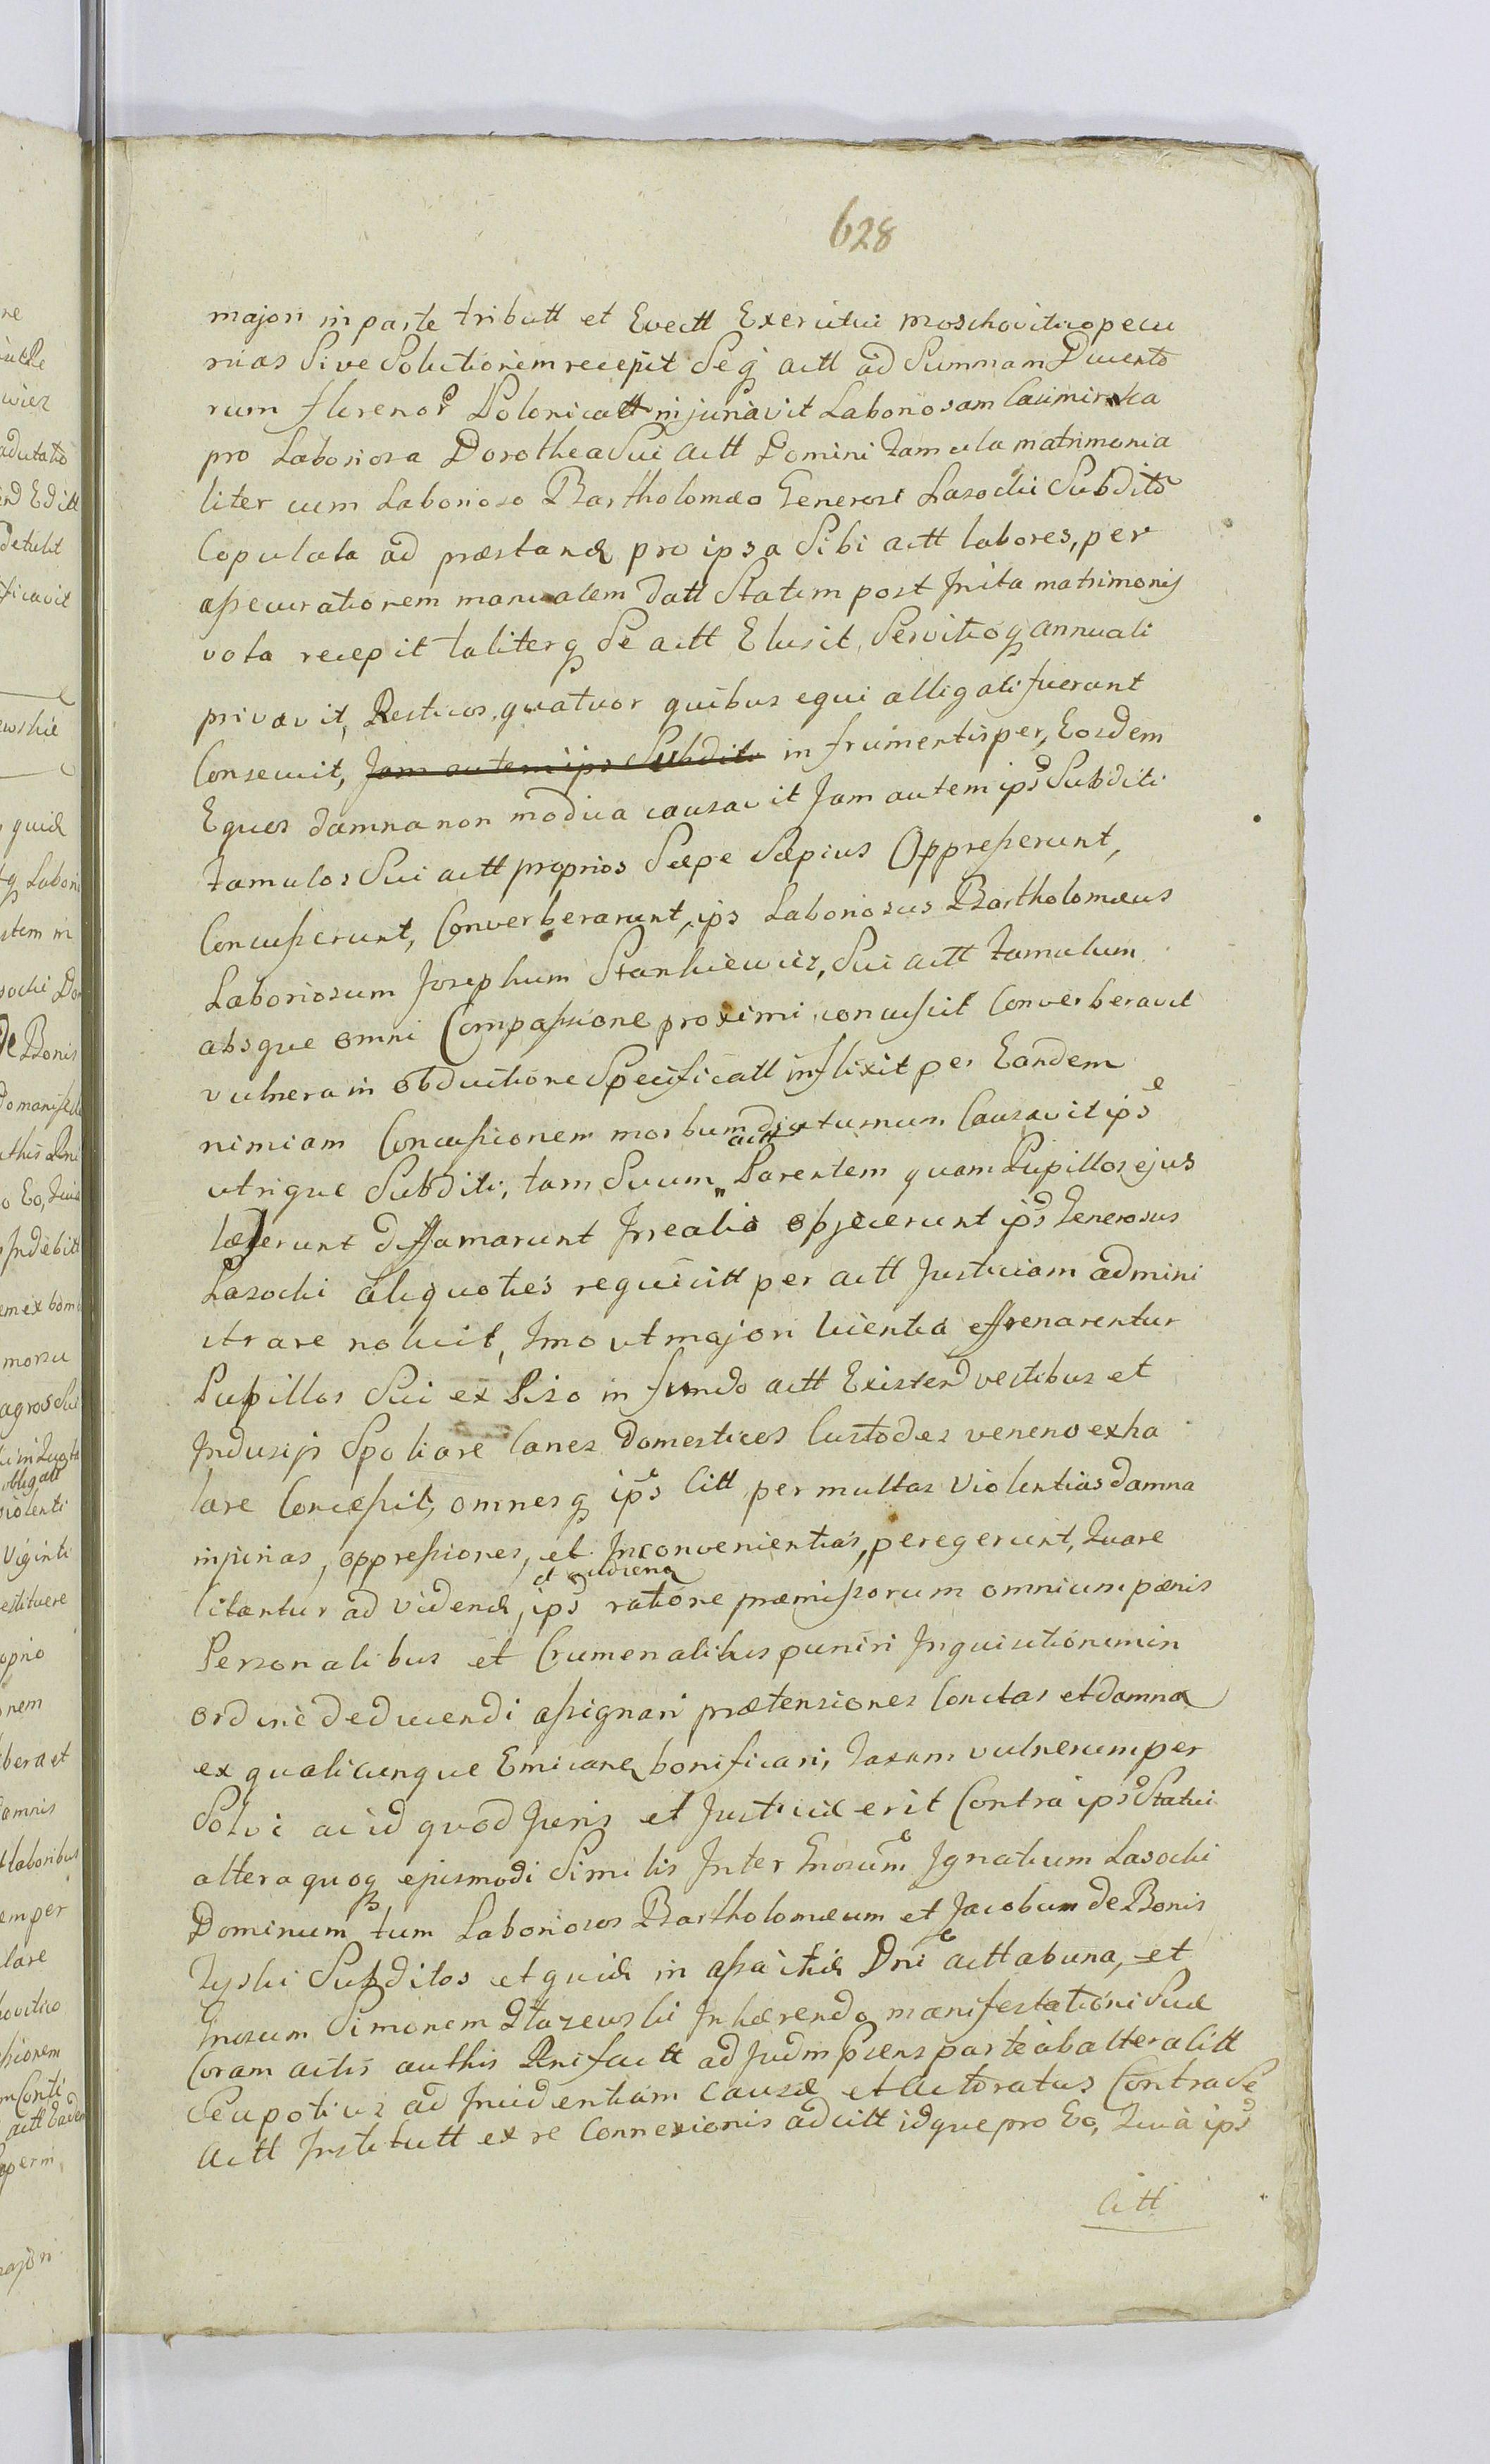 628
majori in parte tributt et Evectt Exercitui Moschovitico pecu
nias Sive Solutionem recepit Seq actt ad Summam Ducento
rum florenor Polonicatt injuriavit Laboriosam Casimirska
pro Laboriosa Dorothea Sui actt Domini Famula matrimonia
liter cum Laborioso Bartholomæo Generosi Lasocki Subdito
Copulata ad præstand pro ipsa Sibi actt labores, per
assecurationem manualem datt Statim post Inita matrimonij
vota recepit taliterq Se actt Elusit, Servitioq annuali
privavit, Resticos quatuor quibus equi alligati fuerant
Consecuit, Jam autem ips Subditi in frumentis per, Eosdem
Equos damna non modica causavit Jam autem ips Subditi
Famulos Sui actt proprios Sæpe Sæpius Oppresserunt,
Concusserunt, Converberarunt, ips Laboriosus Bartholomæus
Laboriosum Josephum Stankiewicz, Sui actt Famulum
absque omni Compassione proximi concussit Converberavit
vulnera in obductione Specificatt inflixit per Eandem
nimiam Concussionem morbum diuturnum Causavit ips
utrique Subditi, tam Suum actt Parentem quam Pupillos ejus
læserunt diffamarunt Irrealia objecerunt ips Generosus
Lasocki aliquoties requisitt per actt Justiciam admini
strare noluit, Imo ut majori licentia effrenarentur
Pupillos Sui ex Piso in fundo actt Existend vestibus et
Indusijs Spoliare Canes domesticos Custodes veneno exha
lare Concessit, omnesq ips Citt permultas violentias damna
injurias, oppressiones, et Inconvenientias, peregerunt, Quare
Citantur ad vidend et audiend, ips ratione præmissorum omnium pœnis
Personalibus et Crumenalibus puniri Inquisitionem in
ordine deducendi assignari prætensiones Conctas et damna
ex qualicunque Emicand bonificari, Taxam vulnerum per
Solvi ac id quod Juris et Justiciæ erit Contra ips Statui
altera quoq ejusmodi Similis Inter Gnosum Ignatium Lasocki
Dominum tum Laboriosos Bartholomæum et Jacobum de Bonis
Tyski Subditos et quid in assathia Dni actt ab una, et
Gnosum Simonem Stazewski Inhærendo manifestationi Suæ
Coram actis authis Pnifactt ad Judm Psens parte ab altera litt
Seu potius ad Incidentiam causæ et actoratus Contra Se
actt Institutt ex re Connexionis ad citt idque pro Eo, Quia ips
Citt